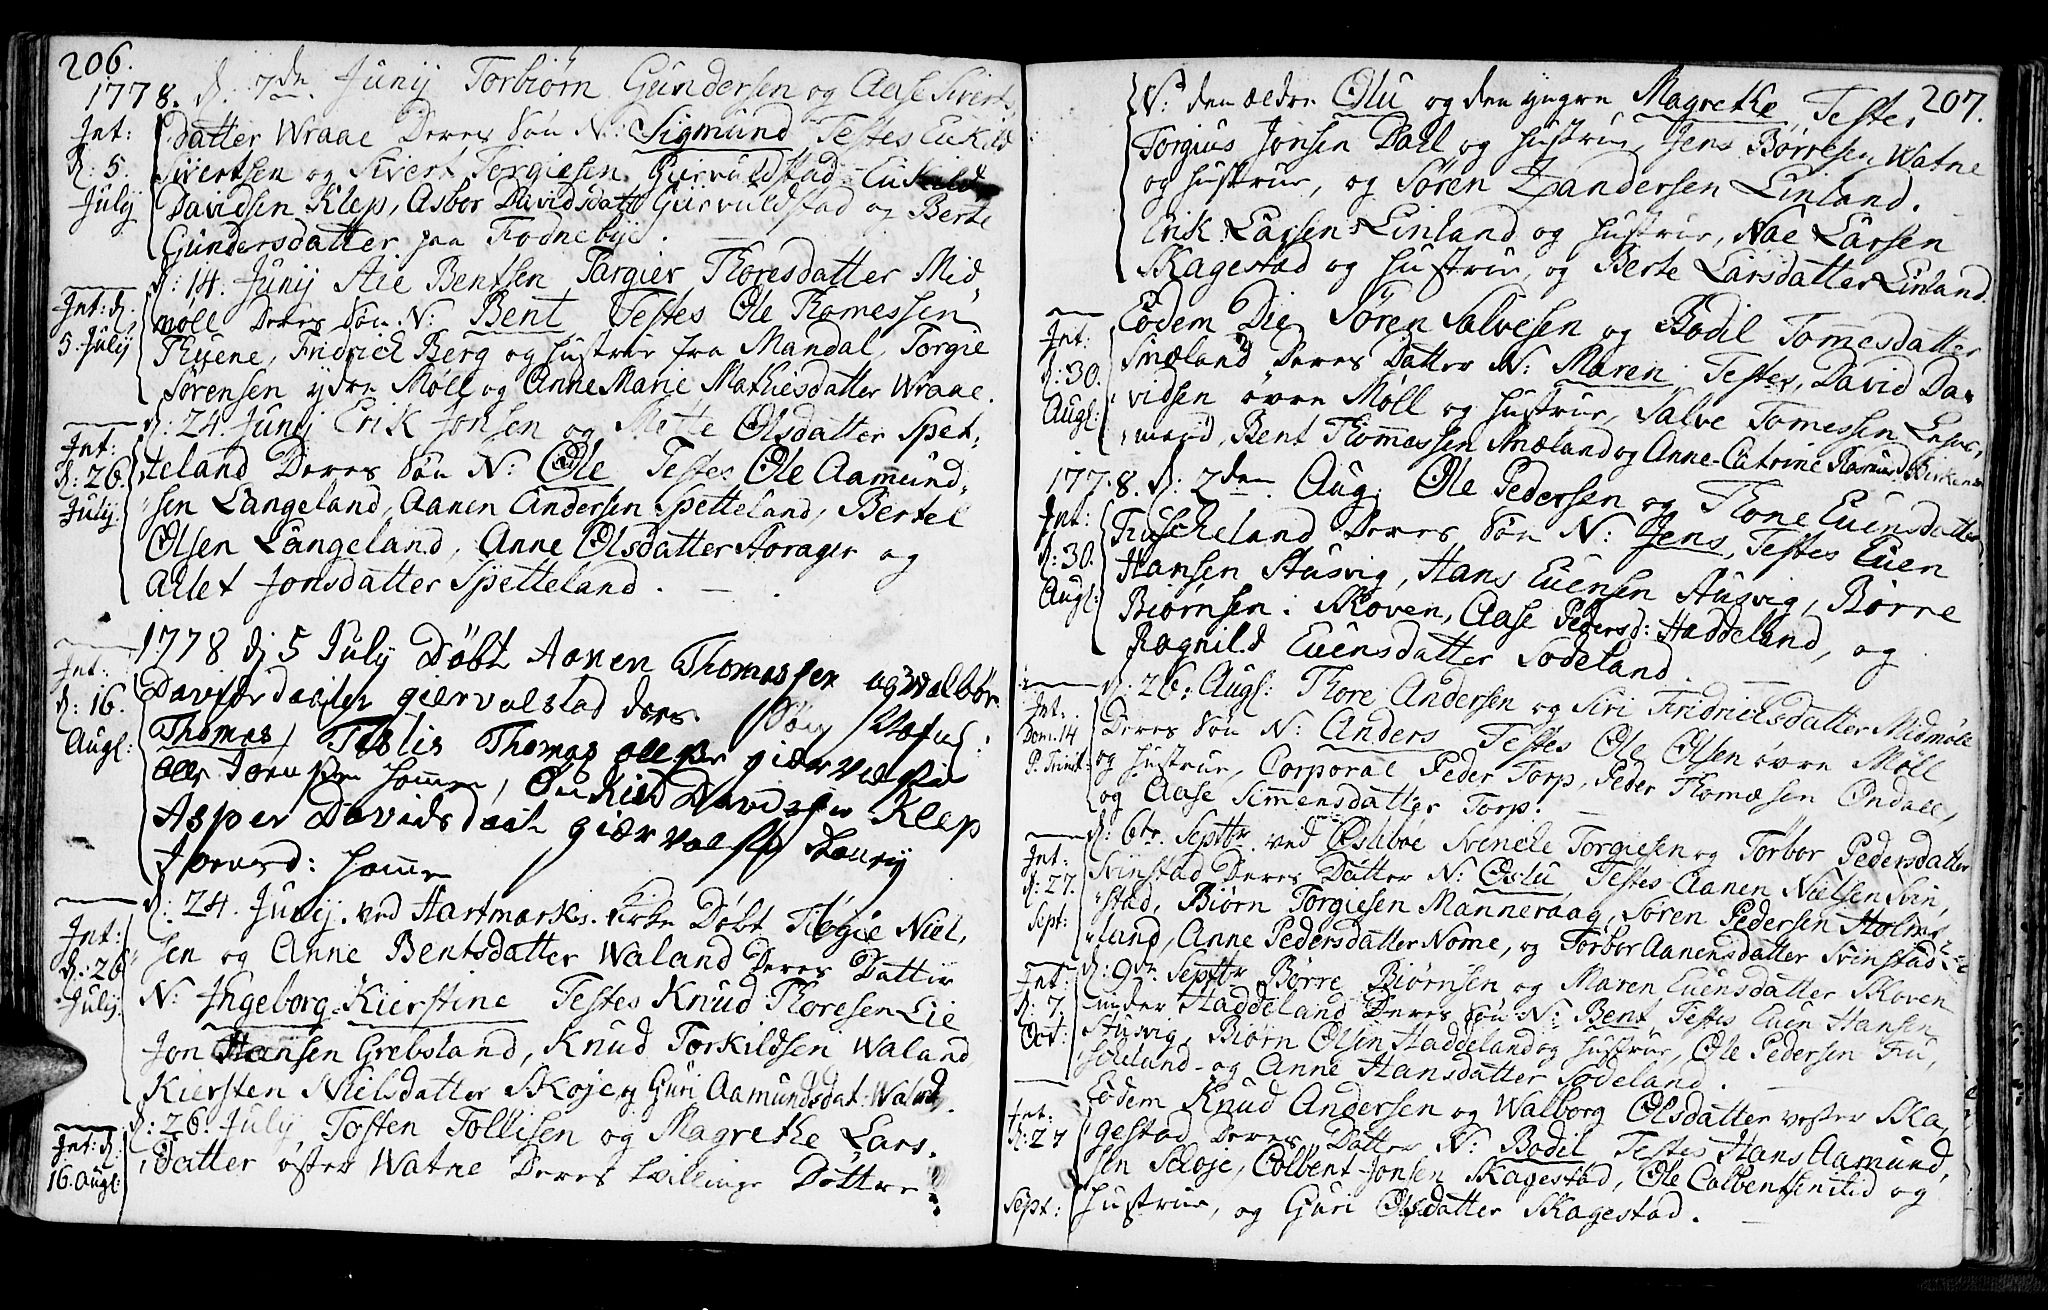 206.
1778. d. 7de Junij Torbiørn Gundersen og Aase Siverts
Int: datter Wraae Deres Søn N: Sigmund Testes Eukild
d: 5. Sivertsen og Sivert Torgiesen Gierruldstad Eukild
July Davidsen Klep, Asbor Davidsdatt Giervuldstad og Berte
Gundersdatter paa Fodnebye.
d: 14. Junij Aie Bentsen Targier Thoresdatter Mid
Int: d. møll Deres Søn N: Bent Testes Ole Thomessen
5. July Thuene, Fridrich Berg og Hustrue fra Mandal, Torgie
Sørensen ydre Møll og Anne Marie Mathiesdatter Wraae.
d: 24 Junij Erik Jonsen og Mette Olsdatter Spet,
Int: teland Deres Søn N: Ole Testes Ole Aamund,
d: 26. sen Langeland, Aanen Andersen Spetteland, Bertel
July: Olsen Langeland, Anne Olsdatter Horager og
Allet Jonsdatter Spetteland.
1778 d 5 July Døbt Aanen Thomassen og Walbør
Int: Davidsdaatter giervalstad deres Søn Nafnl:
d: 16. Thomas, Testis Thomas ollsen giærvalsta
Augl: olle Joensen homme, Oukild Davidsen Klep
Asper Davidsdaat giærvalsta
homme
d: 24. Junij ved Hartmarks Kirke Døbt Tiøgie Niel,
Int: sen og Anne Bentsdatter Waland Deres Datter
d: 26 N: Ingeborg Kierstine Testes Knud Thoresen Lie
July: Jon Hansen Grebsland, Knud Torkildsen Waland,
Kiersten Nielsdatter Skoje, og Guri Aamundsdat: Waland.
d: 26. July, Tosten Tollisen og Magrethe Lars.
Int: d: datter øster Watne Deres tvillinge Døttre
16. Augl:
207.
N: den ældre Olu og den yngre Magrethe, Testes
Torgius Jonsen Dall og Hustrue, Jens Børresen Watne
og Hustrue, og Søren Zandersen Linland.
Erik Larsen Linland og Hustrue, Nae Larsen
Skagestad og Hustrue, og Berte Larsdatter Linland.
Eodem Die Søren Salvesen og Bodil Tomesdatter
Int: Snæland Deres Datter N: Maren Testes, David Da,
d: 30. vidsen øvre Møll og Hustrue, Salve Tomessen
Augl: Bent Thomæssen Snæland og Anne Catrine
1778. d: 2den Aug: Ole Pedersen og Thone Euensdatter
Int: Fuscheland Deres Søn N: Jens, Testes Euen
d: 30. Hansen Ausvig, Hans Euensen Ausvig, Børre
Augl: Biørnsen i Skoven, Aase Pedersd: Haddeland, og
Ragnild Euensdatter Sodeland.
d: 26: Augl: Thore Andersen og Siri Fridrichsdatter Midmøll
Int: Deres Søn N: Anders Testes Ole Olsen øvre Møll
Dom: 14 og Hustrue, Corporal Peder Torp, Peder Thomæsen Ondall,
P. Trinit: og Aase Simensdatter Torp.
d: 6te Septbr ved Øslebøe Svenele Torgiesen og Torbor Pedersdatter
Int: Svinstad Deres Datter N: Oslu, Testes Aanen Nielsen Svin,
d: 27. stad, Biørn Torgiesen Manneraag, Søren Pedersen Holme,
Sept: land, Anne Pedersdatter Nome, og Torbor Aanensdatter Svinstad
Int: d: 9de Septbr Børre Biørnsen og Maren Euensdatter Skoven
d: 7. under Haddeland Deres Søn N: Bent Testes Euen Hansen
Oct: Ausvig, Biørn Olsen Haddeland og Hustrue, Ole Pedersen Fu,
scheland og Anne Hansdatter Sodeland.
Eodem Knud Andersen og Walborg Olsdatter vester Ska,
Int: gestad Deres Datter N: Bodil Testes Hans Aamund,
d: 27 sen Schoje, Colbent Jonsen Skagestad, Ole Colbentsen itid og
Sept: Hustrue, og Guri Olsdatter Skagestad.